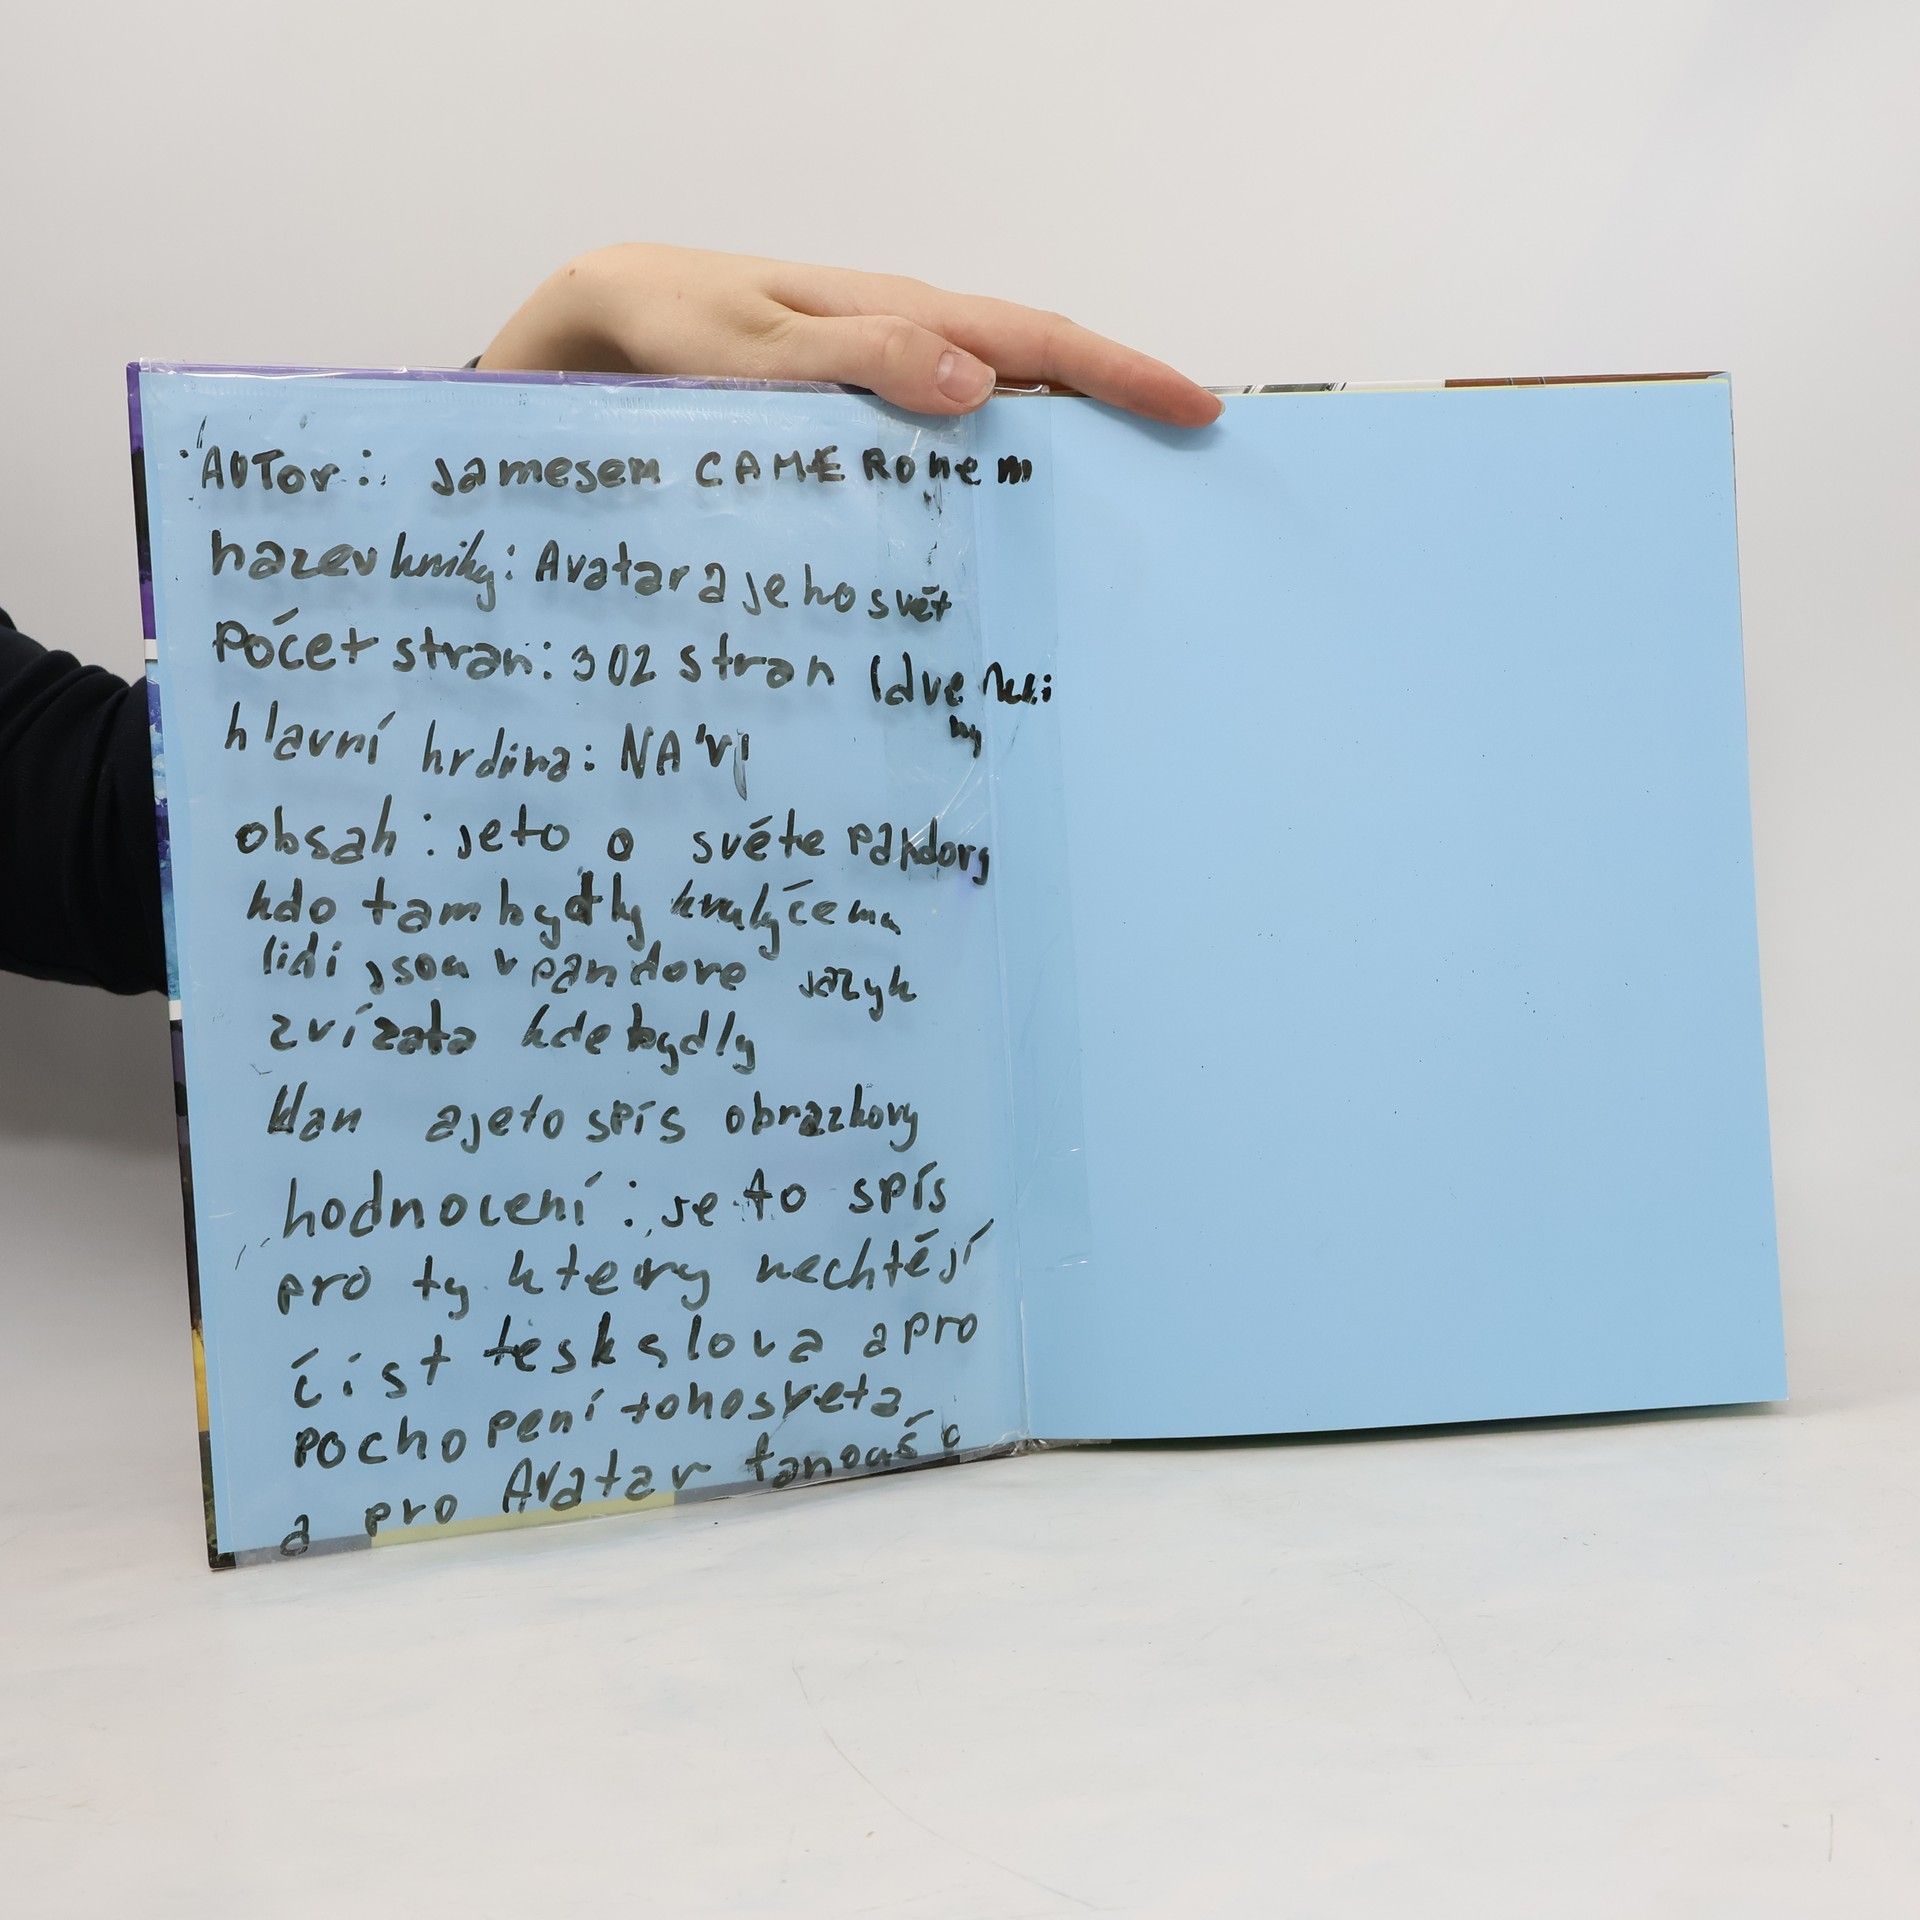 Autor: Jamesem CAMERONEM
nazev knihy: Avatar a jeho svět
Počet stran: 302 stran (dve
hlavní hrdina: NA'VI
obsah: jeto o světe pandory
kdo tam bydly čemu
lidi jsou v pandore jazyk
zvízata kde bydly
klan a jeto spís obrazkovy
hodnocení: je to spís
pro ty ktery nechtějí
číst slova a pro
pochopení tohosveta
a pro Avatar